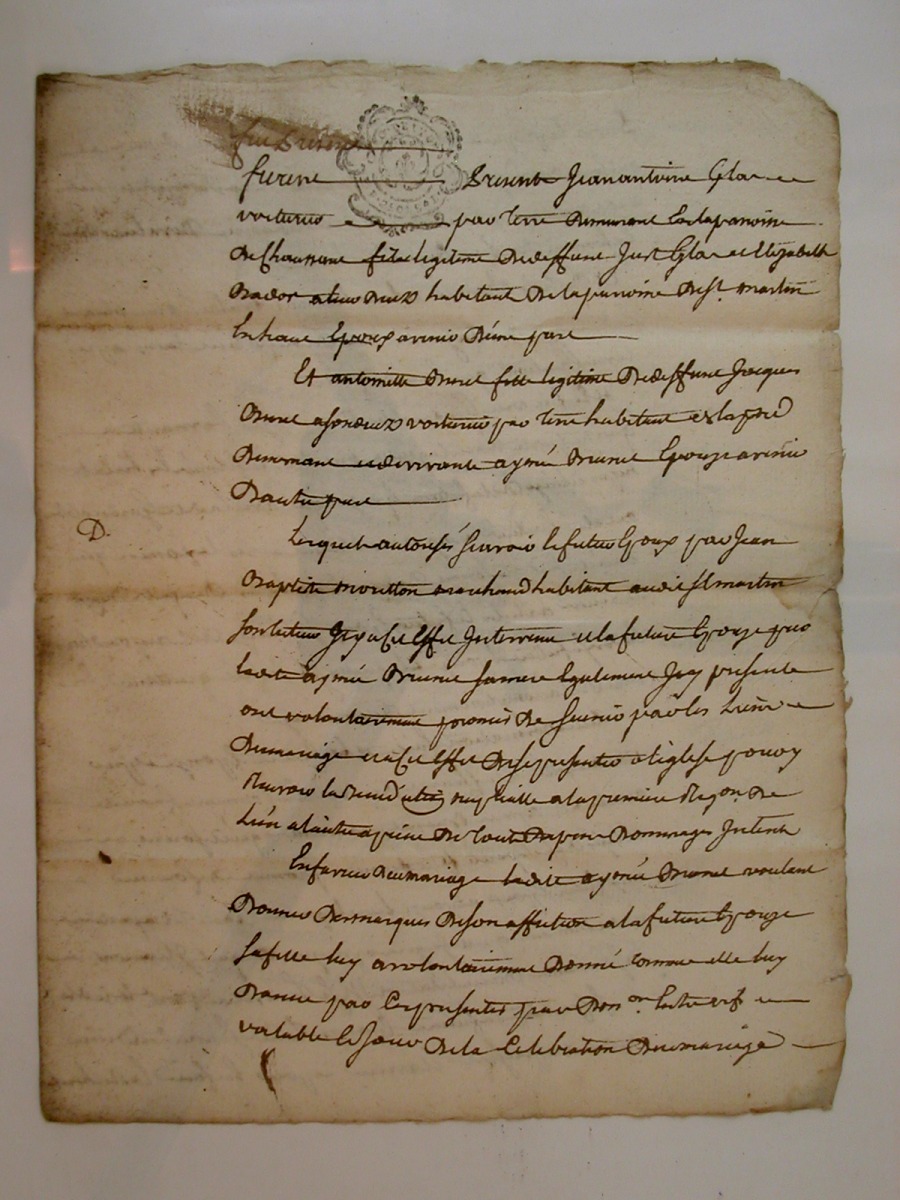 furent
furent Presents Jean antoine Glas
voiturier par terre demeurant en la paroisse
de Chaussan fils legitime de deffunt Just Glas et Elizabeth
habitant de la paroisse de St. martin
en haut Epoux avenir d'une part
Et antoinette Brunel fille legitime de deffunt Jacques
Brunel a son vivant voiturier par terre habitant
demeurant et de vivante aymée Brunel Epouse avenir
d'autre part
D.
Lesquels autorisés scavoir le futur Epoux par Jean
Baptiste mouton marchand habitant audit St martin
son tuteur Icy a cet effet Intervenu et la future Epouse par
ladite aymée Brunel sa mere Egalement Icy presente
ont volontairement promis de s'unir par les Liens
du mariage et a cet effet de se presenter a l'eglise pour y
recevoir la benediction nuptialle a la premiere reqon. de
L'un a l'autre a peine de tout depens dommages Interets
En faveur du mariage ladite aymée Brunel voulant
donner des marques de son affection a la future Epouse
sa fille luy a volontairement donné comme elle luy
donne par Ces presentes par donon. Entre vifs
valable le jour de la Celebration du mariage